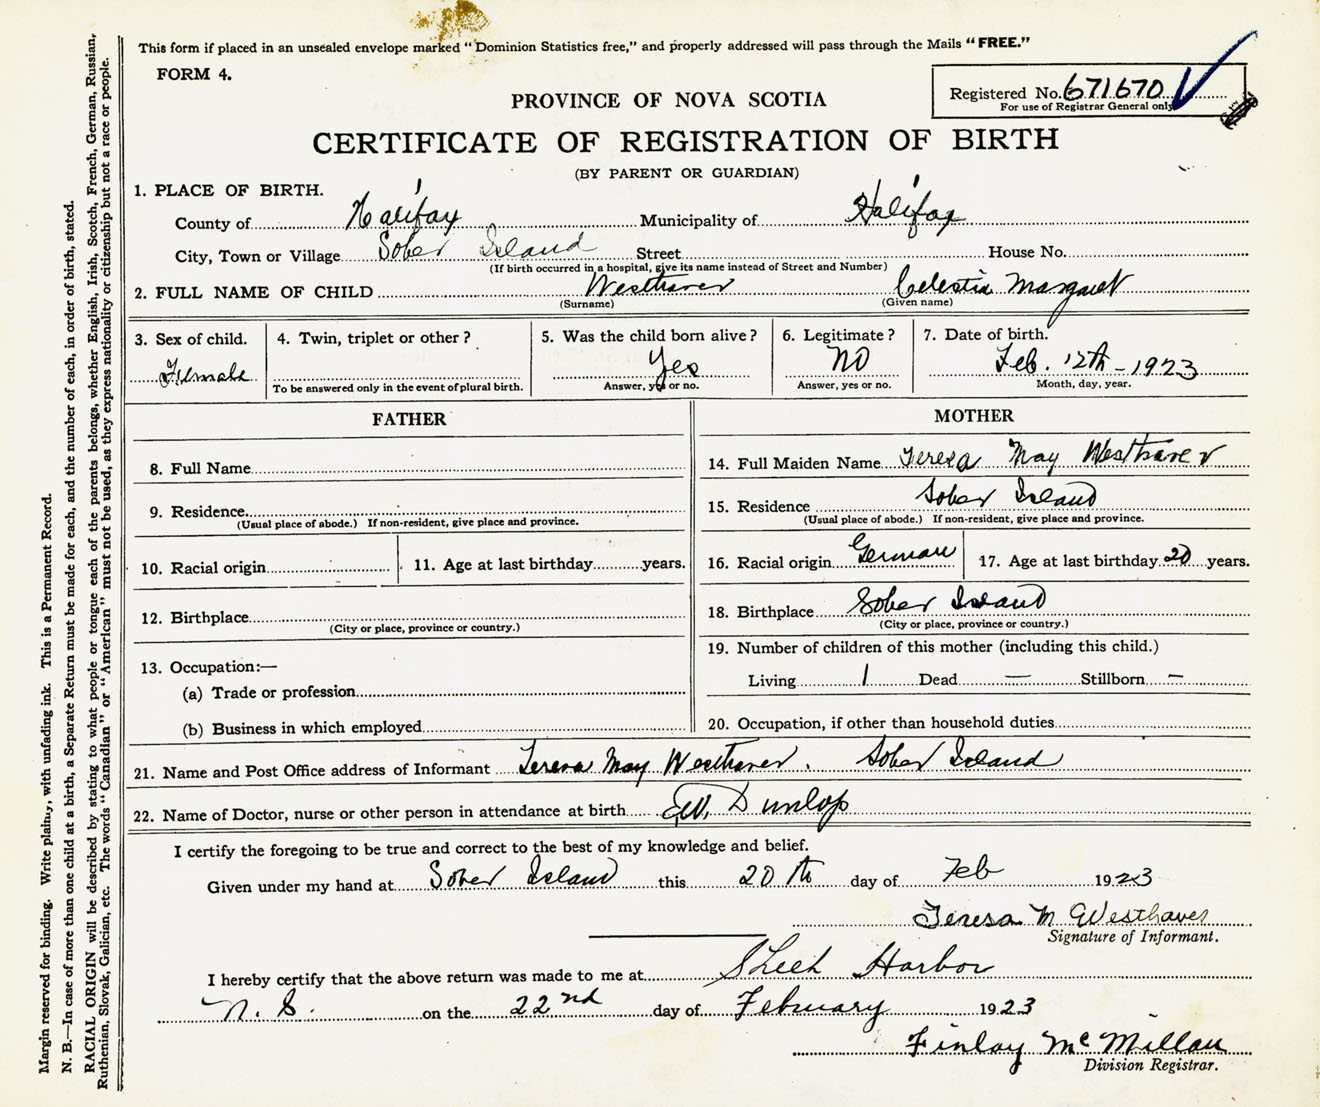 This form if placed in an unsealed envelope marked “Dominion Statistics free,” and properly addressed will pass through the Mails “FREE.”
FORM 4.
Registered No. 671670
For use of Registrar General only
PROVINCE OF NOVA SCOTIA
CERTIFICATE OF REGISTRATION OF BIRTH
(BY PARENT OR GUARDIAN)
1. PLACE OF BIRTH.
County of Halifax Municipality of Halifax
City, Town or Village Sober Island Street House No.
(If birth occurred in a hospital, give its name instead of Street and Number)
2. FULL NAME OF CHILD Westhaver Celestia Margaret
(Surname) (Given name)
3. Sex of child. Female
4. Twin, triplet or other?
To be answered only in the event of plural birth.
5. Was the child born alive? Yes
Answer, yes or no.
6. Legitimate? NO
Answer, yes or no.
7. Date of birth. Feb. 12th - 1923
Month, day, year.
FATHER
8. Full Name
9. Residence.
(Usual place of abode.) If non-resident, give place and province.
10. Racial origin 11. Age at last birthday years.
12. Birthplace
(City or place, province or country.)
13. Occupation:—
(a) Trade or profession
(b) Business in which employed
MOTHER
14. Full Maiden Name Teresa May Westhaver
15. Residence Sober Island
(Usual place of abode.) If non-resident, give place and province.
16. Racial origin German 17. Age at last birthday 20 years.
18. Birthplace Sober Island
(City or place, province or country.)
19. Number of children of this mother (including this child.)
Living 1 Dead — Stillborn -
20. Occupation, if other than household duties
21. Name and Post Office address of Informant Teresa May Westhaver. Sober Island
22. Name of Doctor, nurse or other person in attendance at birth Dunlop
I certify the foregoing to be true and correct to the best of my knowledge and belief.
Given under my hand at Sober Island this 20th day of Feb 1923
Teresa M Westhaver
Signature of Informant.
I hereby certify that the above return was made to me at Sheet Harbor
N. S. on the 22nd day of February 1923
Finlay McMillan
Division Registrar.
Margin reserved for binding. Write plainly, with unfading ink. This is a Permanent Record.
N. B.—In case of more than one child at a birth, a Separate Return must be made for each, and the number of each, in order of birth, stated.
RACIAL ORIGIN will be described by stating to what people or tongue each of the parents belongs, whether English, Irish, Scotch, French, German, Russian,
Ruthenian, Slovak, Galician, etc. The words “Canadian” or “American” must not be used, as they express nationality or citizenship but not a race or people.